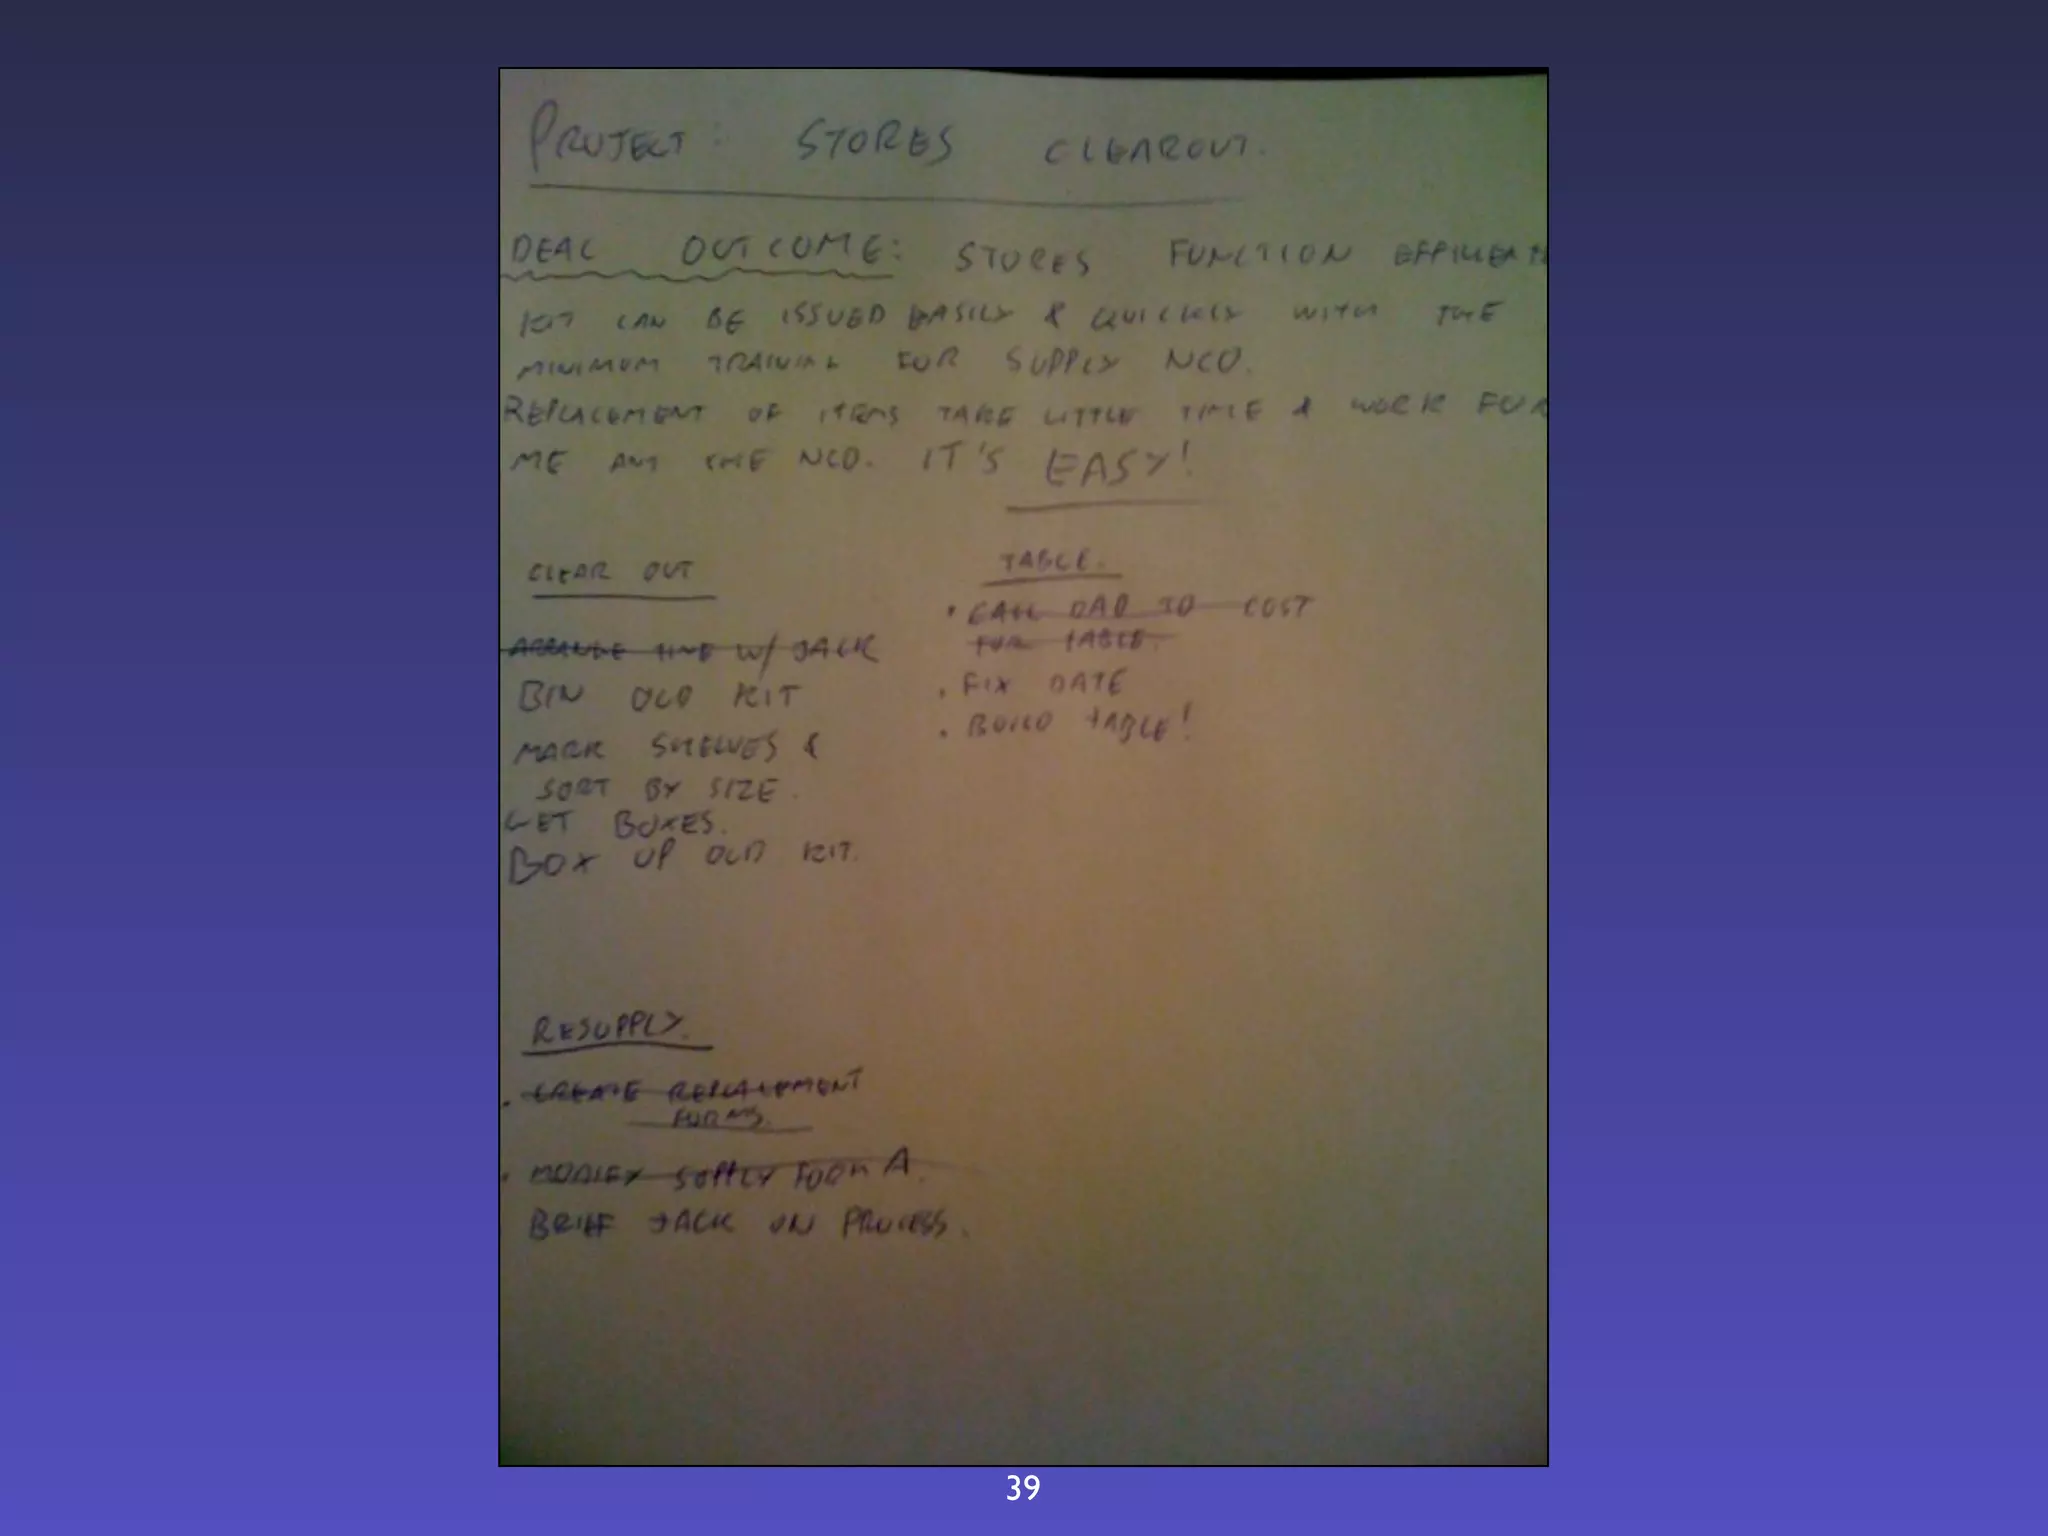 PROJECT: STORES CLEAROUT.
DEAL OUTCOME: STORES FUNCTION
KIT CAN BE ISSUED EASILY & QUICKLY WITH THE
MINIMUM TRAINING FOR SUPPLY NCO.
REPLACEMENT OF ITEMS TAKE LITTLE TIME & WORK FOR
ME THE NCO. IT'S EASY!
CLEAR OUT
ARRANGE TIME W/ JACK
BIN OLD KIT
MARK SHELVES &
SORT BY SIZE.
GET BOXES.
BOX UP OLD KIT.
TABLE.
• CALL DAD TO COST
FOR TABLE.
• FIX DATE
• BUILD TABLE!
RESUPPLY.
• CREATE REPLACEMENT
FORMS.
• MODIFY SUPPLY FORM A.
BRIEF JACK ON PROCESS.
39